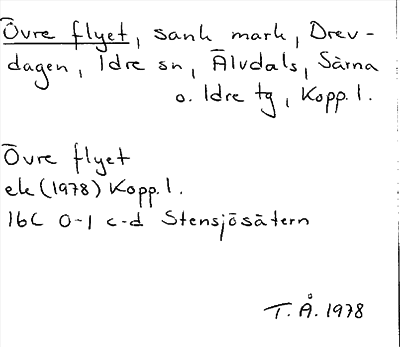 Övre flyet, sank mark, Drev-
dagen, Idre sn, Älvdals, Särna
o. Idre tg, Kopp. l.
Övre flyet
ek (1978) Kopp. l.
16C 0-1 c-d Stensjösätern
T. Å. 1978